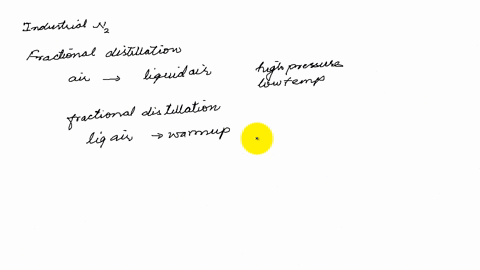 Industrial N₂
Fractional distillation
air → liquid air high pressure
low temp
fractional distillation
liq air → warmup